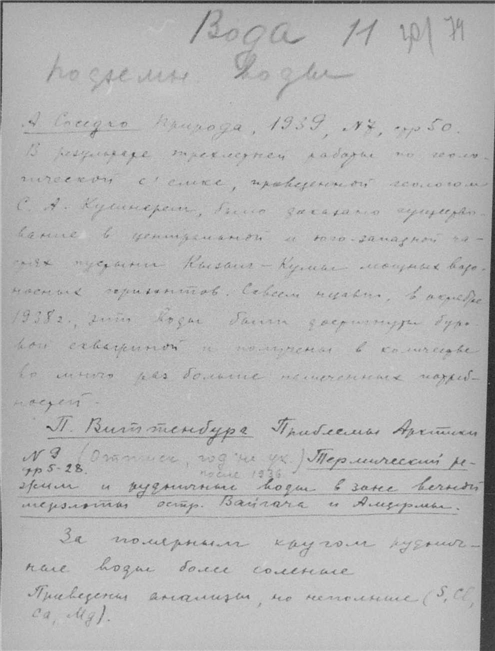 Вода 11
подземн воды
А Соседко Природа, 1939, №7, стр 50.
В результате трехлетней работы по геоло-
гической с'емке, проведенной геологом
С. А. Кушнарем, было доказано существо-
вание в центральной и юго-западной ча-
стях пустыни Кызыл-Кумы мощных водо-
носных горизонтов. Совсем недавно, в октябре
1938 г., эти воды были достигнуты буро-
вой скважиной и получены в количестве
во много раз больше намеченных потреб-
ностей.
П. Виттенбурга Проблемы Арктики
№ 9 (Оттиск, год не ук.) Термический ре-
стр 5-28. после 1936
жим и рудничные воды в зоне вечной
мерзлоты остр. Вайгача и Амдермы.
За полярным кругом руднич-
ные воды более соленые
Приведены анализы, но неполные (S, Cl,
Ca, Mg).